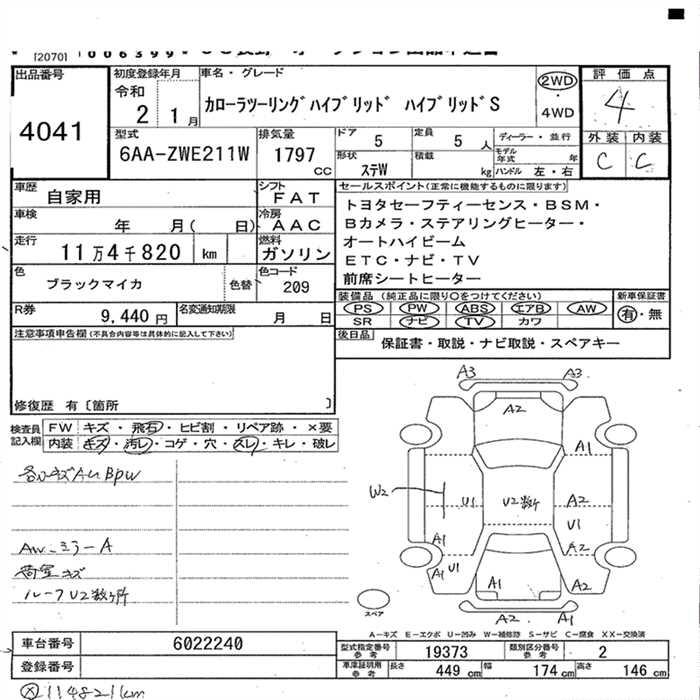 [2070] 006399
出品番号
4041
初度登録年月
令和
2 1月
車名・グレード
カローラツーリングハイブリッド ハイブリッドS
2WD
4WD
評価点
4
外装 内装
C C
型式
6AA-ZWE211W
排気量
1797
cc
ドア
5
定員
5 人
形状
ステW
積載
kg
ディーラー・並行
モデル年式 年
ハンドル 左・右
車歴
自家用
シフト
FAT
車検
年 月( 日)
冷房
AAC
走行
11万4千820 km
燃料
ガソリン
色
ブラックマイカ
色替
色コード
209
R券
9,440 円
名変通知期限
月 日
セールスポイント(正常に機能するものに限ります)
トヨタセーフティーセンス・BSM・
Bカメラ・ステアリングヒーター・
オートハイビーム
ETC・ナビ・TV
前席シートヒーター
装備品 (純正品に限り○をつけてください)
PS PW ABS エアB AW
SR ナビ TV カワ
新車保証書
有・無
後日品
保証書・取説・ナビ取説・スペアキー
注意事項申告欄(不具合内容等は具体的に記入して下さい)
修復歴 有〔箇所 〕
検査員記入欄
FW キズ・飛石・ヒビ割・リペア跡・×要
内装 キズ・汚レ・コゲ・穴・スレ・キレ・破レ
各小キズAUBPW
AW.ミラーA
荷室キズ
ルーフU2数ヶ所
A3 A3
A2
A1
W2 U1 U2数ヶ所 A2
U1
A1 A2
A1 U1 A1 A2
A2 A1
スペア
A－キズ E－エクボ U－凹み W－補修跡 S－サビ C－腐食 XX－交換済
車台番号
6022240
登録番号
型式指定番号 参考
19373
類別区分番号 参考
2
車庫証明用 参考
長さ 449 cm 幅 174 cm 高さ 146 cm
114821km